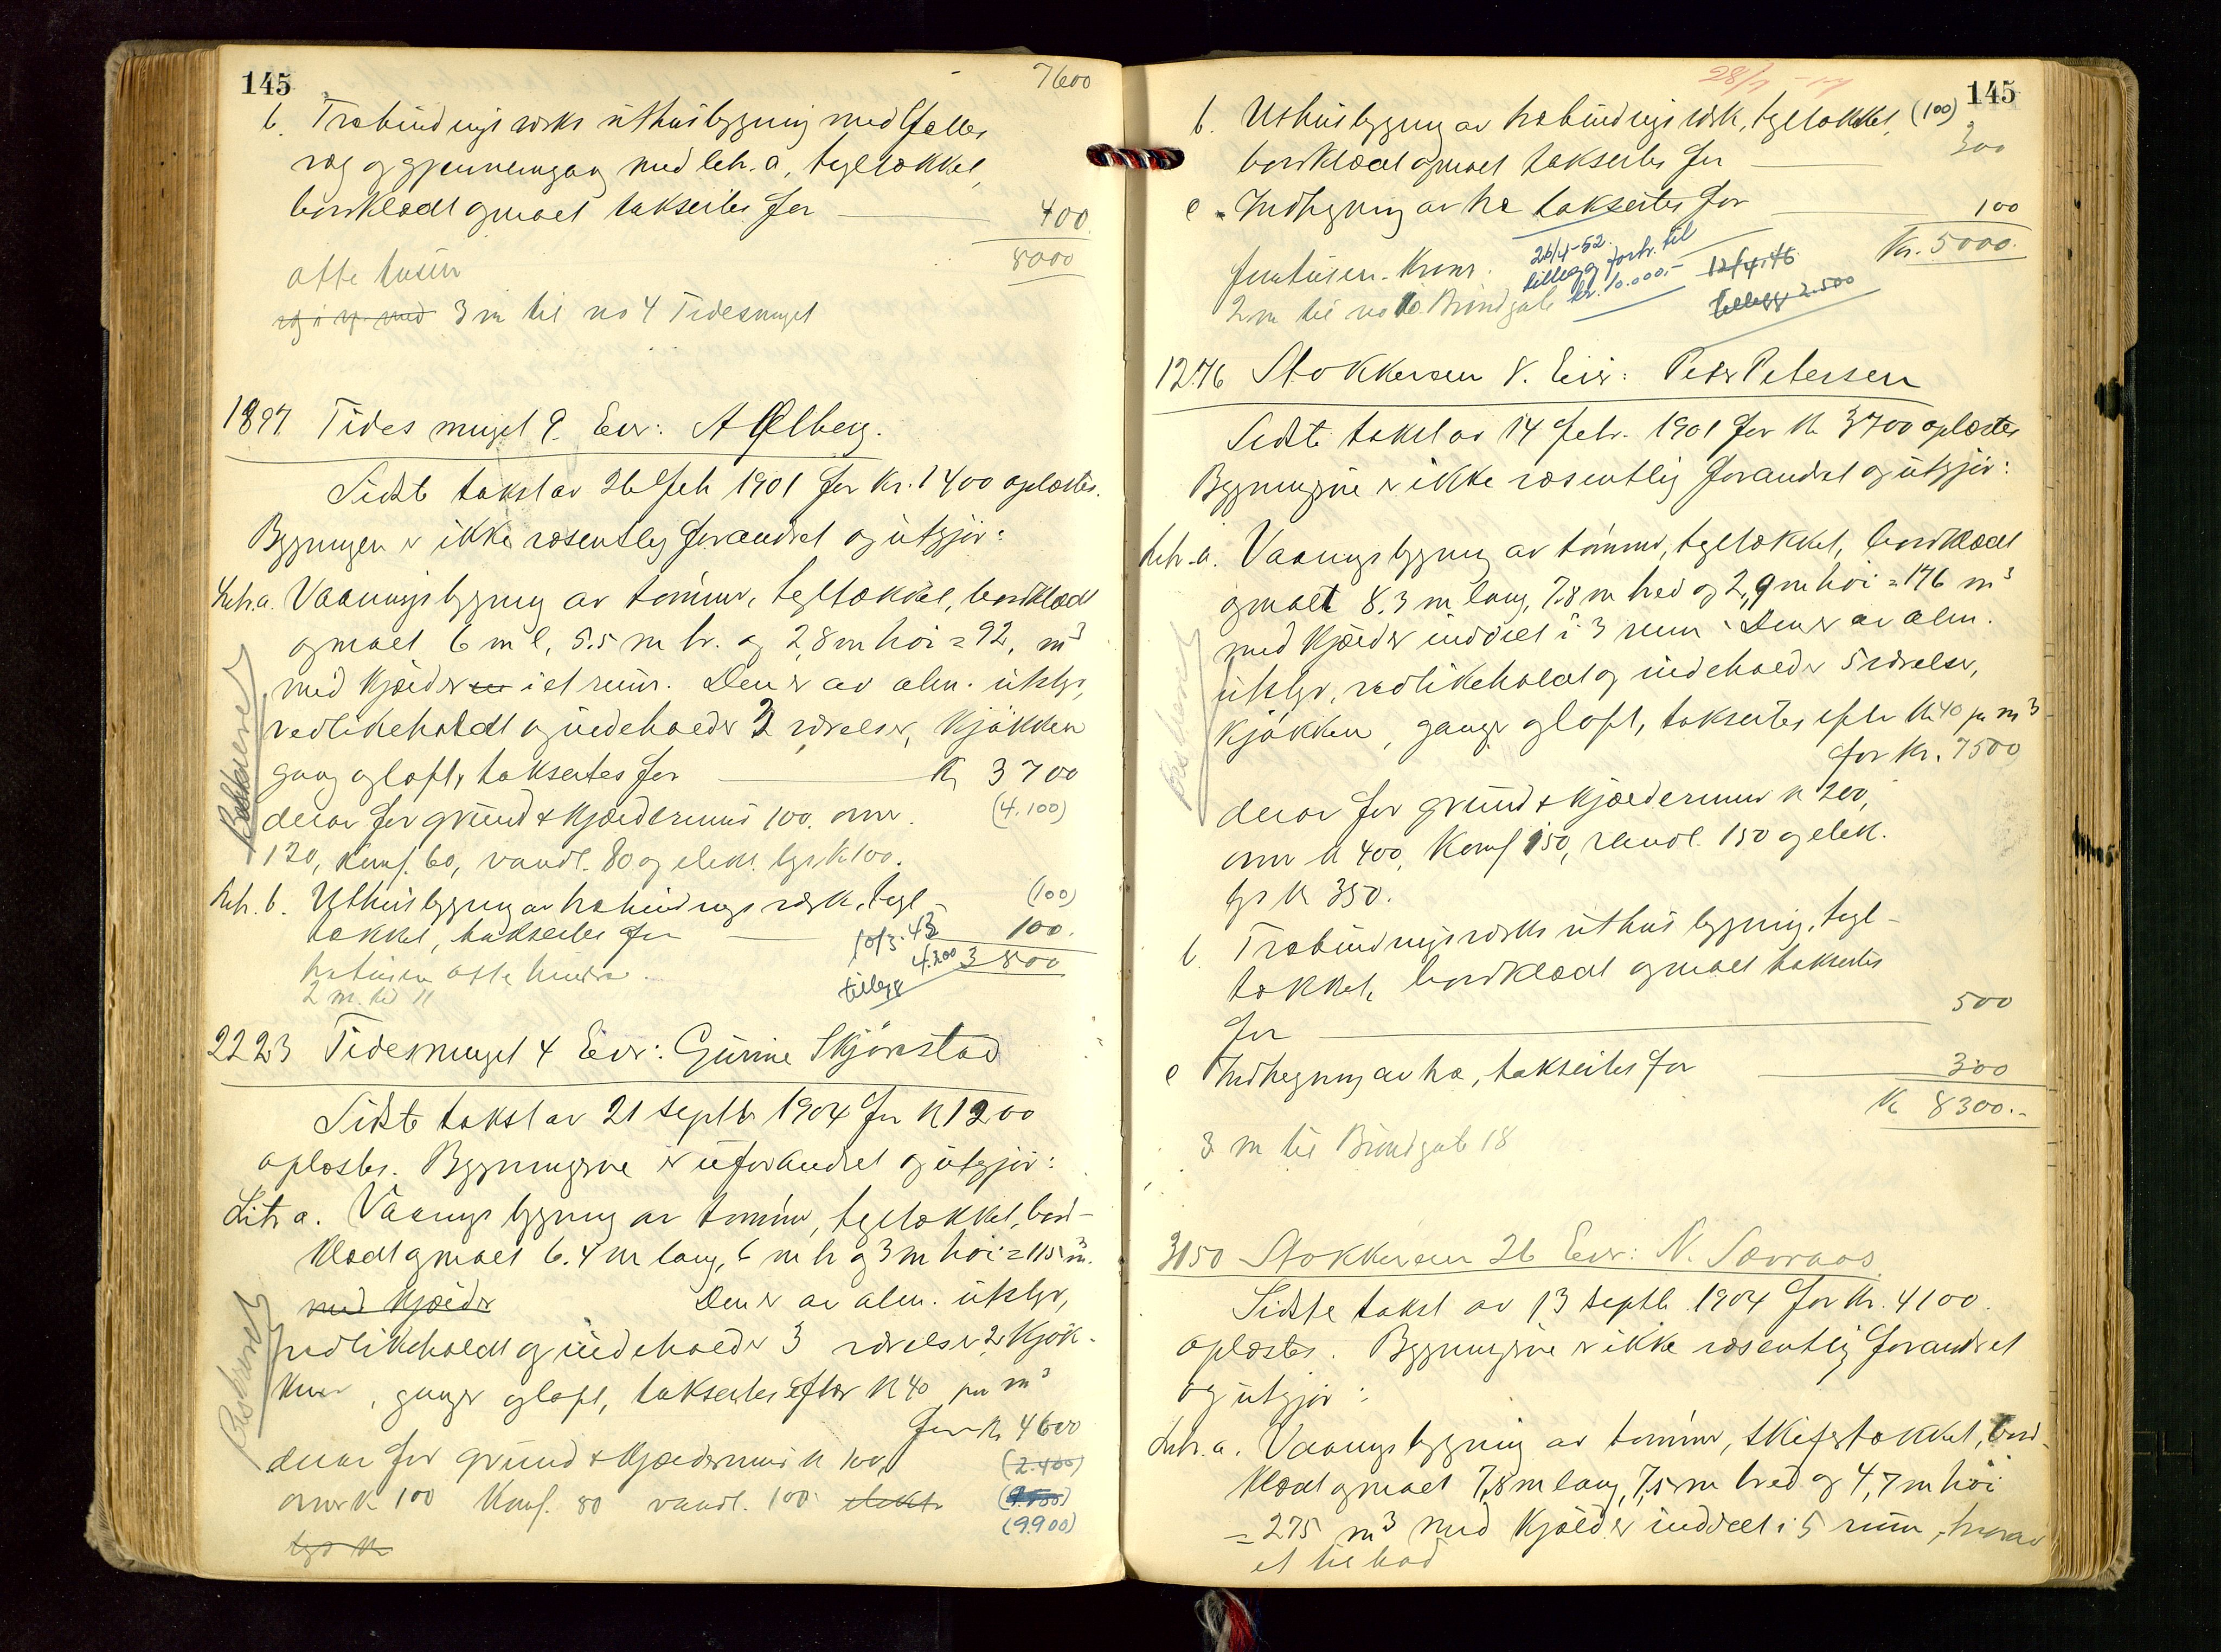 145
7600
b. Træbindingsverks uthusbygning med fælles
væg og gjennemgang med litr. a, tegltækket,
bordklædt og malt takseres for 400
8000
otte tusin
3 m til no 4 Tidesmuget
1897 Tidesmuget 9. Eier: A Ølberg.
Sidste takst av 26 feb 1901 for Kr. 1400 oplæstes.
Bygningen er ikke væsentlig forandret og utgjör:
Litr. a. Vaaningsbygning av tömmer, tegltækket, bordklædt
og malt 6 m l, 5.5 m br. og 2,8 m höi = 92, m³
med kjælder i et rum. Den er av alm. utstyr,
vedlikeholdt og indeholder 2 værelser, kjökken
gang og loft, takseres for K 3700
derav for grund & kjældermur 100. ovner. (4.100)
120, komf. 60, vandl. 80 og elekt. lys k 100.
Litr. b. Uthusbygning av træbindingsverk, tegl- (100)
tækket, takseres for 100.
10/3.43 4.200 3800
tillegg
tretusen otte hundre.
2 m. til 11
2223 Tidesmuget 4 Eier: Gurine Skjörestad
Sidste takst av 21 septbr 1904 for K 1200
oplæstes. Bygningerne er uforandret og utgjör:
Litr a. Vaaningsbygning av tömmer, tegltækket, bord-
klædt og malt 6.4 m lang, 6 m br og 3 m höi = 115 m³.
med kjælder Den er av alm. utstyr,
vedlikeholdt og indeholder 3 værelser 2 kjök-
kener, ganger og loft, takseres efter K 40 pr m³
for K 4600
derav for grund & kjældermur K 100, (2.400)
ovner K 100 Komf. 80 vandl. 100 elekt.
(9.900)
lys K
145
28/7 - 17
b. Uthusbygning av træbindingsverk, tegltækket, (100)
bordklædt og malt takseres for 300
c. Indhegning av træ takseres for 100
Kr. 5000.
femtusen Kroner. 26/4-52. tillegg forh. til kr. 10.000.- 12/4.46. tillegg 2.500
2 m til no 10 Brundgate
1276 Stokkeveien 8. Eier: Peder Petersen
Sidste takst av 14 febr. 1901 for K 3700 oplæstes
Bygningerne er ikke væsentlig forandret og utgjör:
Litr. a. Vaaningsbygning av tömmer, tegltækket, bordklædt
og malt 8.3 m lang, 7.8 m bred og 2,9 m höi = 176 m³
med kjælder inddelt i 3 rum. Den er av alm.
utstyr, vedlikeholdt og indeholder 5 værelser,
kjökken, ganger og loft, takseres eftr K 40 pr m³
for Kr. 7500
derav for grund & kjældermur K 200,
ovner K 400, Komf 150, vandl. 150 og elek.
lys K 350.
b. Træbindingsverks uthusbygning, tegl-
tækket, bordklædt og malt takseres
for 500
c Indhegning av træ, takseres for 300
K 8300.-
3 m til Brundgate 18
3150 Stokkeveien 26 Eier: N. Sævraas
Sidste takst av 13 septb. 1904 for Kr. 4100.
oplæstes. Bygningerne er ikke væsentlig forandret
og utgjör:
Litr. a. Vaaningsbygning av tömmer, skifertækket, bord-
klædt og malt 7,8 m lang, 7,5 m bred og 4,7 m höi
= 275 m³ med kjælder inddelt i 5 rum, hvorav
et til bad